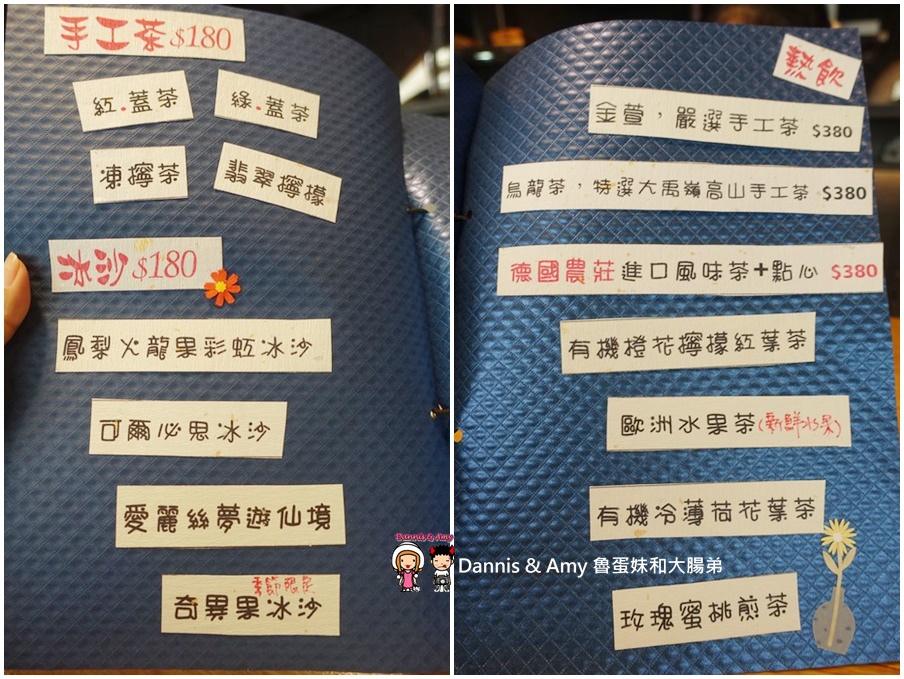 手工茶 $180
紅.蓋茶
綠.蓋茶
凍檸茶
翡翠檸檬
冰沙 $180
鳳梨火龍果彩虹冰沙
可爾必思冰沙
愛麗絲夢遊仙境
季節限定
奇異果冰沙
熱飲
金萱，嚴選手工茶 $380
烏龍茶，特選大禹嶺高山手工茶 $380
德國農莊進口風味茶+點心 $380
有機橙花檸檬紅葉茶
歐洲水果茶(新鮮水果)
有機冷薄荷花葉茶
玫瑰蜜桃煎茶
Dannis & Amy
Dannis & Amy 魯蛋妹和大腸弟